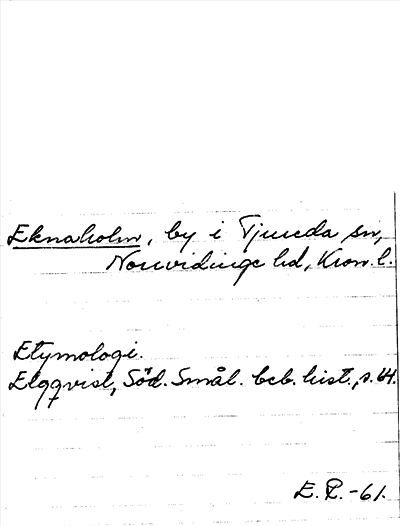 Eknaholm, by i Tjureda sn,
Norrvidinge hd, Kron. l.
Etymologi.
Elgqvist, Söd. Smål. beb. hist., s. 64.
E. P. -61.